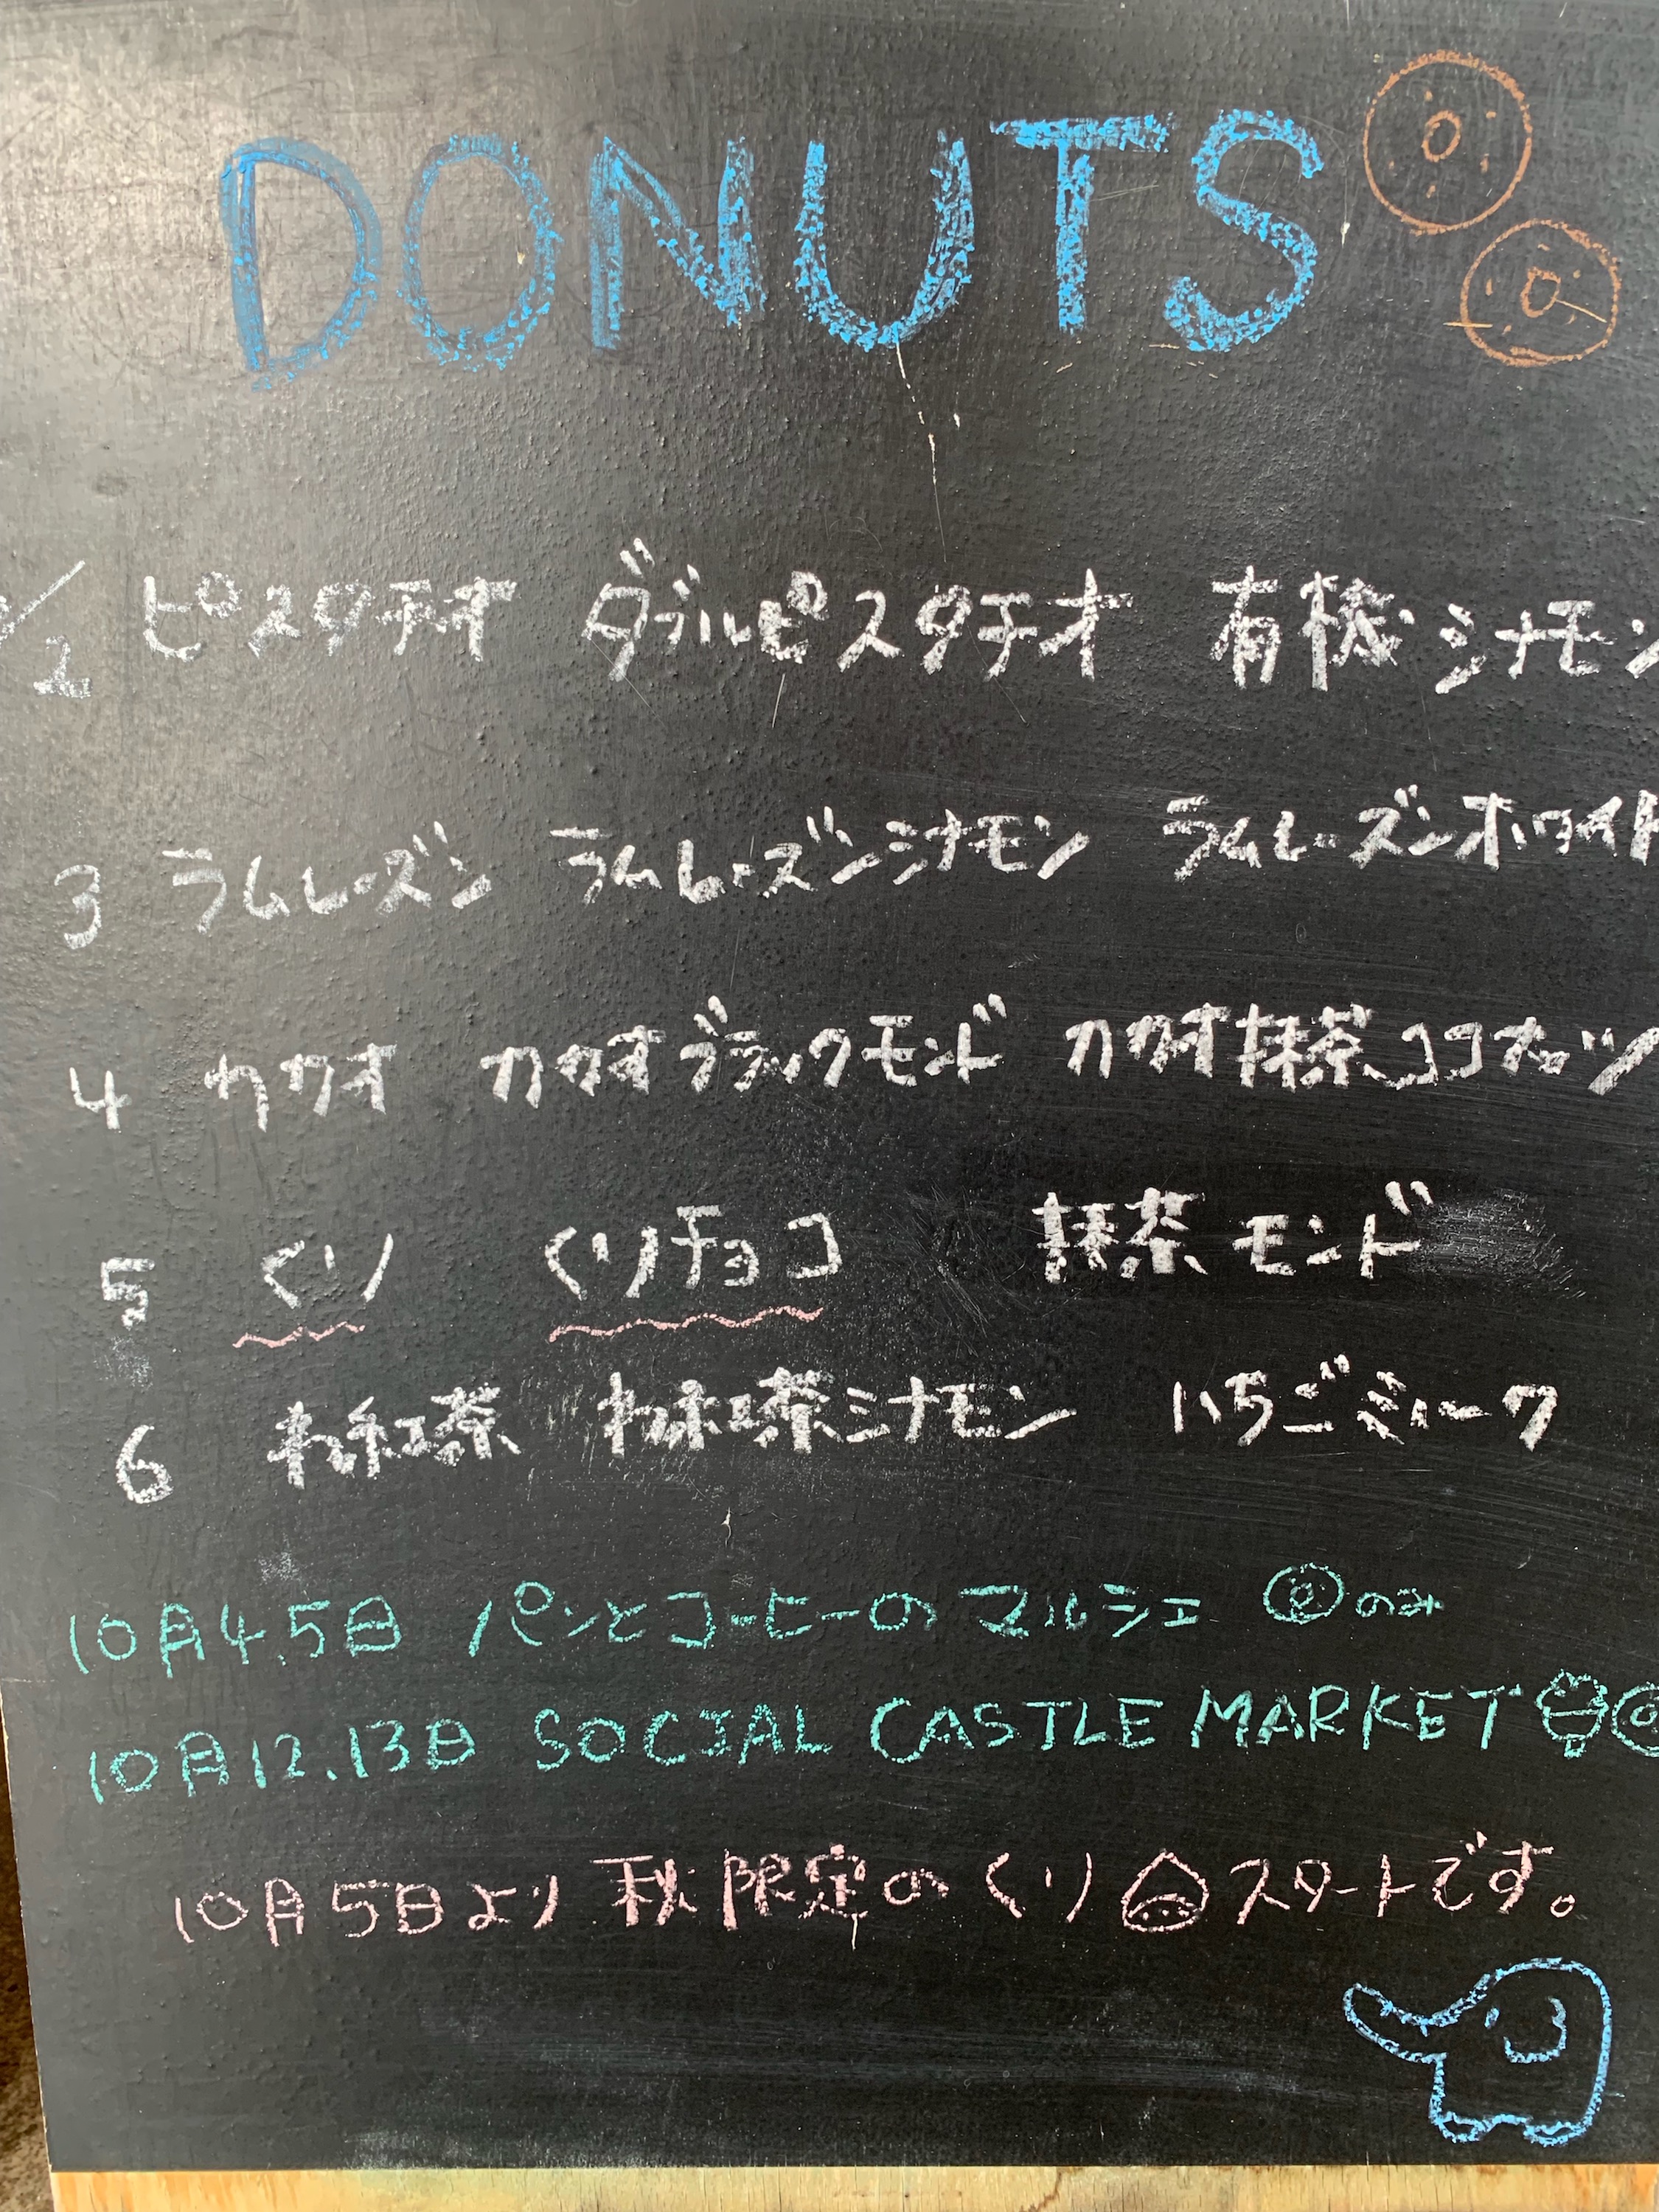 DONUTS
/2 ピスタチオ ダブルピスタチオ 有機シナモン
3 ラムレーズン ラムレーズンシナモン ラムレーズンホワイト
4 カカオ カカオブラックモンド カカオ抹茶ココナッツ
5 くり くりチョコ 抹茶モンド
6 和紅茶 和紅茶シナモン いちごミルク
10月4.5日 パンとコーヒーのマルシェ のみ
10月12.13日 SOCIAL CASTLE MARKET
10月5日より 秋限定のくりスタートです。